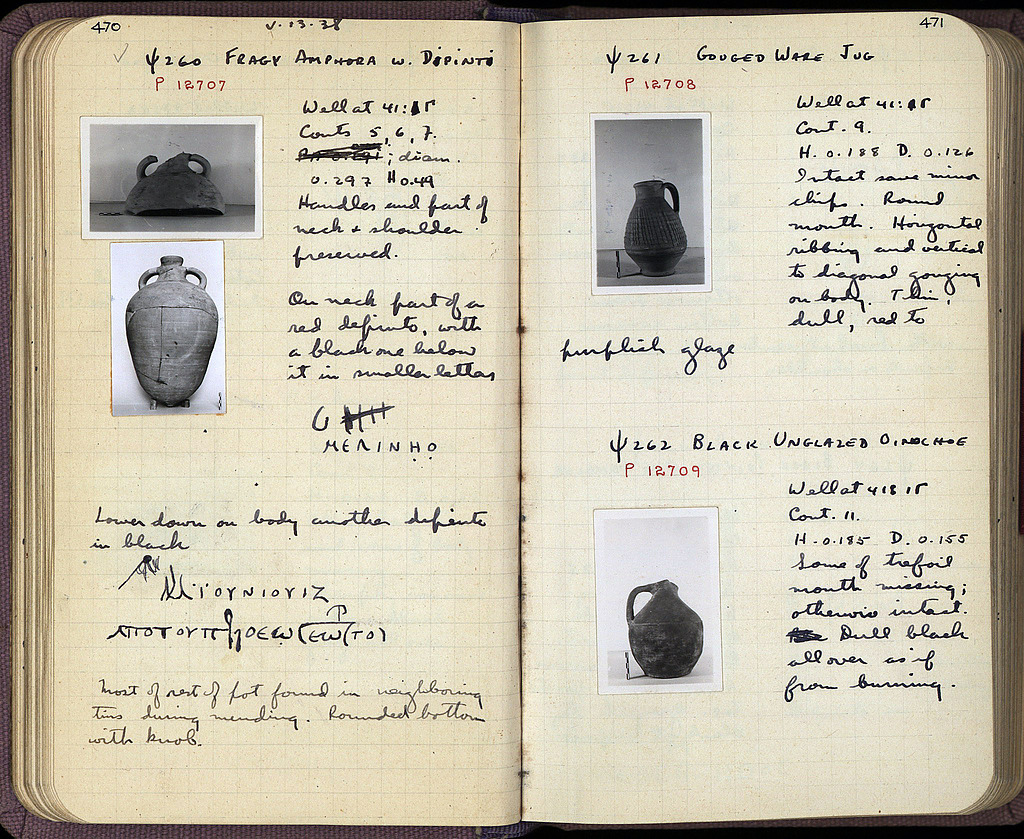 470
V.13.38
Ψ260 FRAGY AMPHORA W. DIPINTI
P 12707
Well at 41:ΙΕ
Conts 5, 6, 7.
; diam.
0.297 H 0.49
Handles and part of
neck + shoulder
preserved.
On neck part of a
red dipinto, with
a black one below
it in smaller letters
ΜΕΛΙΝΗΟ
Lower down on body another dipinto
in black
ΙΟΥΝΙΟΥΙΖ
ΑΠΟΤΟΥΠ
Most of rest of pot found in neighboring
tins during mending. Rounded bottom
with knob.
471
Ψ261 GOUGED WARE JUG
P 12708
Well at 41:ΙΕ
Cont. 9.
H. 0.188 D. 0.126
Intact save minor
chips. Round
mouth. Horizontal
ribbing and vertical
to diagonal gouging
on body. Thin,
dull, red to
purplish glaze
Ψ262 BLACK UNGLAZED OINOCHOE
P 12709
Well at
Cont. 11.
H. 0.185 D. 0.155
Some of trefoil
mouth missing;
otherwise intact.
Dull black
all over as if
from burning.